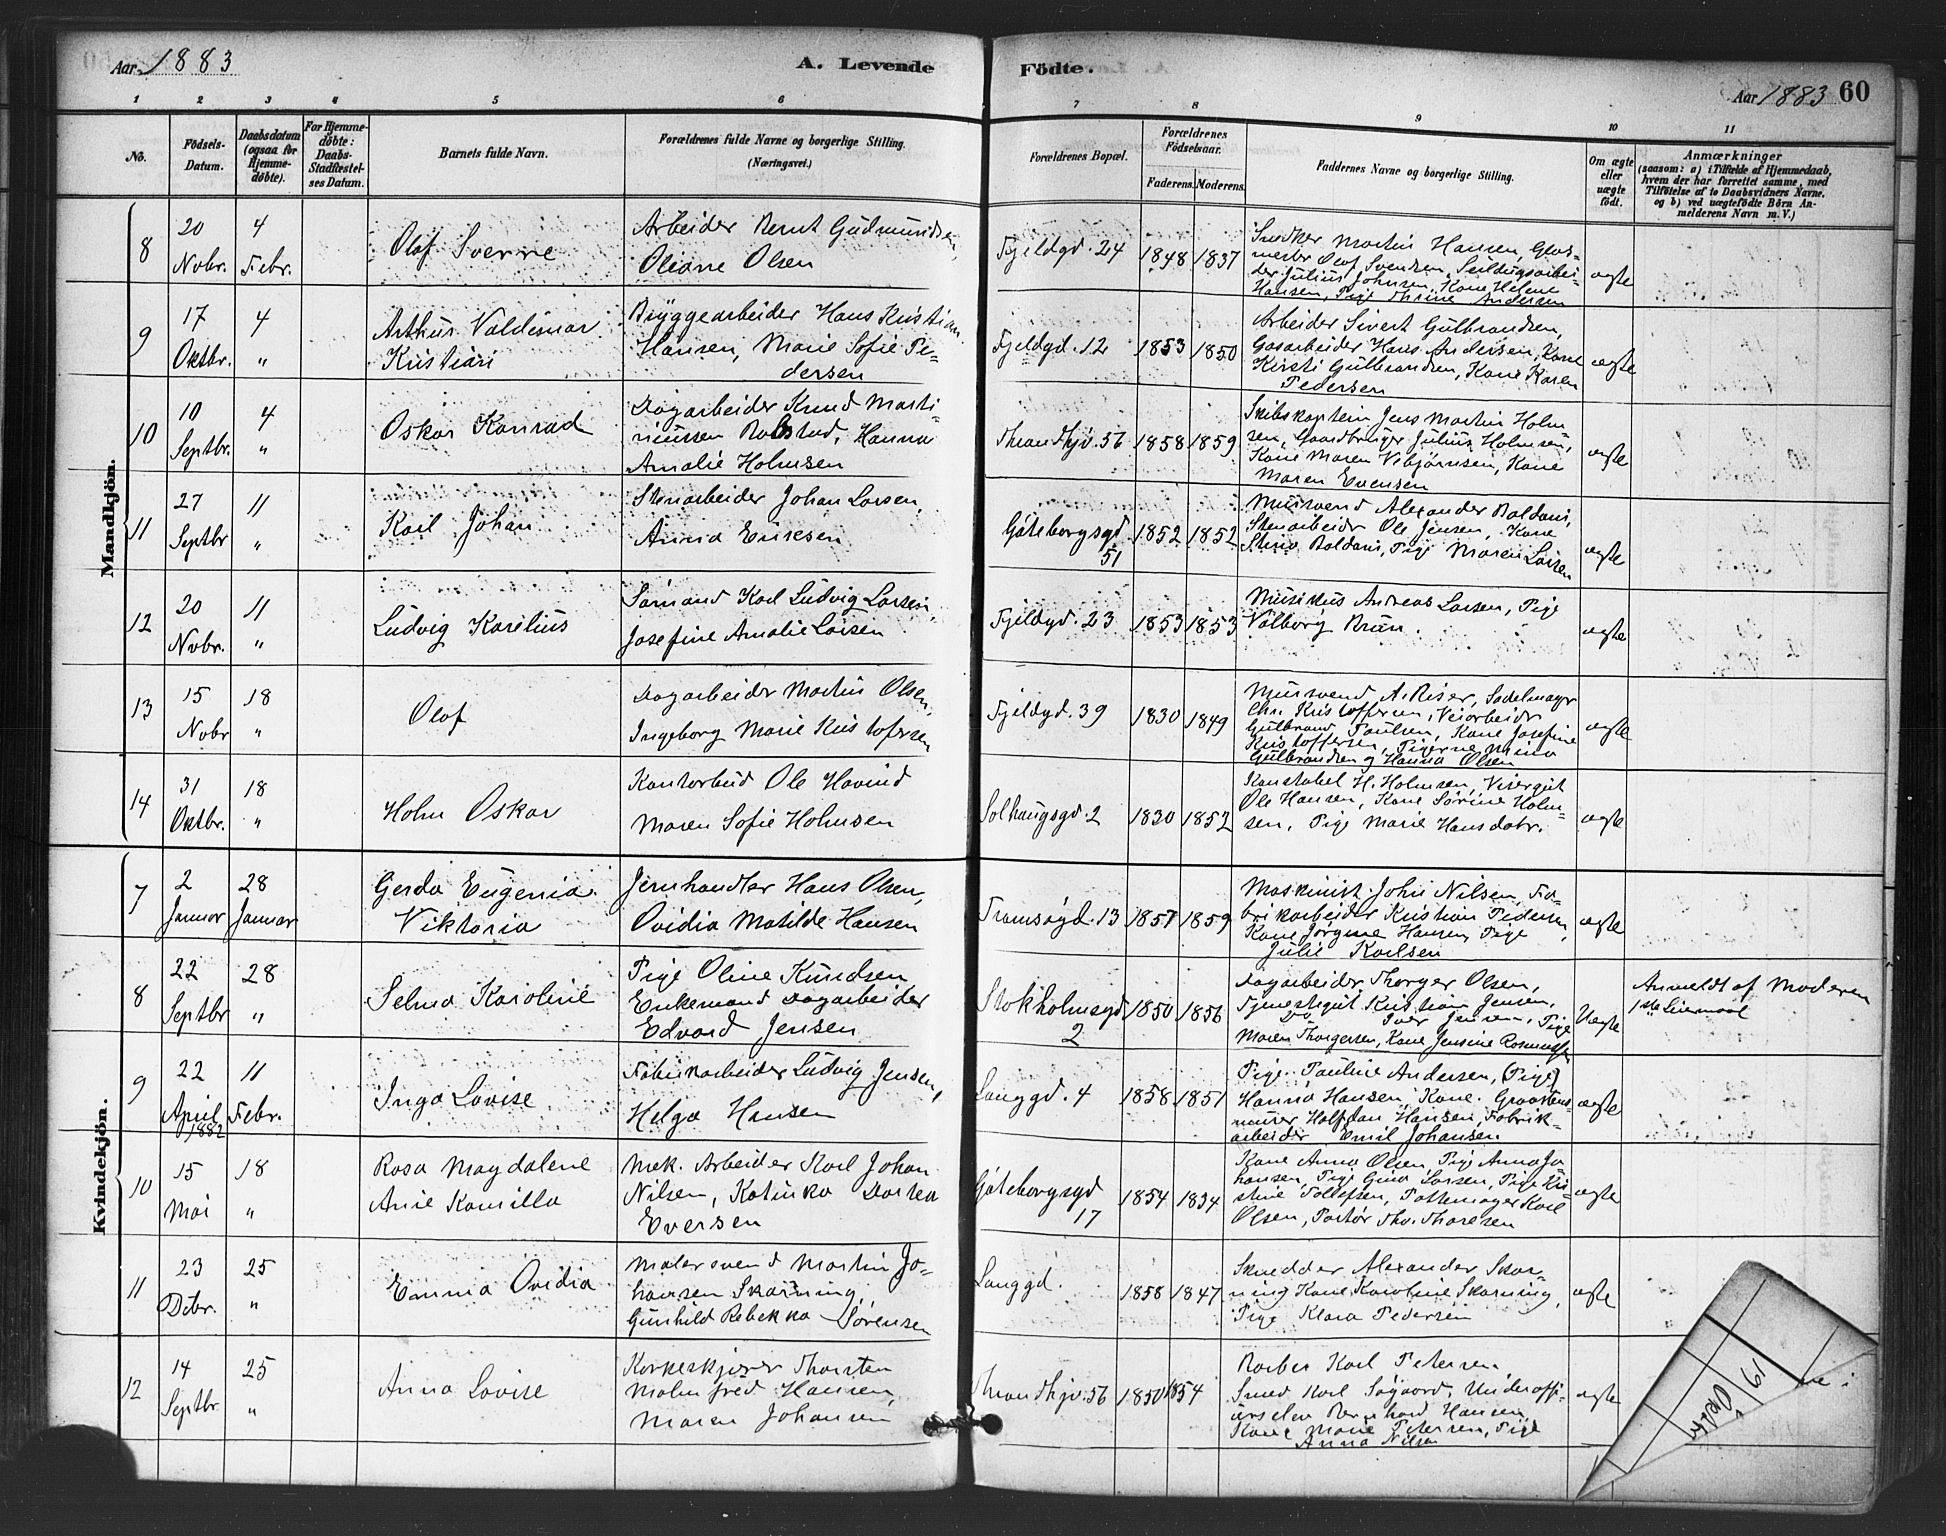 Aar 1883
A. Levende Födte.
Aar 1883 60
1 2 3 4 5 6 7 8 9 10 11
No.
Födsels-Datum.
Daabsdatum (ogsaa for Hjemmedöbte).
For Hjemmedöbte: Daabs-Stadfæstelses Datum.
Barnets fulde Navn.
Forældrenes fulde Navne og borgerlige Stilling.
(Næringsvei.)
Forældrenes Bopæl.
Forældrenes Födselsaar.
Faderens. Moderens.
Faddernes Navne og borgerlige Stilling.
Om ægte eller uægte födt.
Anmærkninger
(saasom: a) i Tilfælde af Hjemmedaab, hvem der har forrettet samme, med Tilföielse af to Daabsvidners Navne, og b) ved uægtefödte Börn Anmelderens Navn m. V.)
Mandkjön.
8
20 Novbr.
4 Febr.
Olaf Sverre
Arbeider Bernt Gudmundsen,
Oliane Olsen
Fjeldgd. 24
1848 1837
Snedker Martin Hansen, Glas-
mester Olaf Svendsen, Seildugsarbei-
der Julius Johnsen, Kone Helene
Hansen, Pige Thrine Andersen
ægte
9
17 Oktbr.
4 "
Arthur Valdemar
Kristian
Bryggearbeider Hans Kristian
Hansen, Marie Sofie Pe-
dersen
Fjeldgd. 12
1853 1850
Arbeider Sivert Gulbrandsen,
Gasarbeider Hans Andersen, Kone
Kirsti Gulbrandsen, Kone Karen
Pedersen
ægte
10
10 Septbr.
4 "
Oskar Konrad
Dagarbeider Knud Marti-
niussen Rolstad, Hanna
Amalie Holmsen
Throndhjv. 56
1858 1859
Skibskaptein Jens Martin Holm
sen, Gaardbruger Julius Holmsen,
Kone Maren Vibjørnsen, Kone
Maren Evensen
ægte
11
27 Septbr
11 "
Karl Johan
Stenarbeider Johan Larsen,
Anna Eriksen
Göteborgsgd. 51
1852 1852
Mursvend Alexander Baldani,
Stenarbeider Ole Jensen, Kone
Stina Baldani, Pige Maren Larsen
ægte
12
20 Novbr.
11 "
Ludvig Karelius
Sømand Karl Ludvig Larsen
Josefine Amalie Larsen
Fjeldgd. 23
1853 1853
Musikus Andreas Larsen, Pige
Valborg Brun.
ægte
13
15 Novbr
18 "
Olaf
Dagarbeider Martin Olsen,
Ingeborg Marie Kristofersen
Fjeldgd. 39
1830 1849
Mursvend A. Riser, Sadelmager
Chr. Kristoffersen, Veiarbeider
Gulbrand Paulsen, Kone Josefine
Kristoffersen, Pigerne Mina
Gulbrandsen og Hanna Olsen
ægte
14
31 Oktbr.
18 "
Holm Oskar
Kontorbud Ole Havind
Maren Sofie Holmsen
Solhaugsgd. 2
1830 1852
Konstabel H. Holmsen, Visergut
Ole Hansen, Kone Sørine Holm-
sen, Pige Marie Hansdatr.
ægte
Kvindekjön.
7
2 Januar
28 Januar
Gerda Eugenia
Viktoria
Jernhandler Hans Olsen,
Ovidia Matilde Hansen
Tromsøgd. 13
1857 1859
Maskinist John Nilsen, Fa-
brikarbeider Kristian Pedersen,
Kone Jørgine Hansen, Pige
Julie Karlsen
ægte
8
22 Septbr
28 "
Selma Karoline
Pige Oline Knudsen
Enkemand Dagarbeider
Edvard Jensen
Stokholmsgd 2
1850 1856
Dagarbeider Thorger Olsen,
Tjenestegut Kristian Jensen,
Do Iver Jensen, Pige
Maren Thorgersen, Kone Jensine Rasmussen
Uægte
Anmeldt af Moderen
1ste Leiermaal
9
22 April 1882
11 Febr.
Inga Lovise
Fabrikarbeider Ludvig Jensen,
Helga Hansen
Langgd. 4
1858 1851
Pige Pauline Andersen, (Pige)
Hanna Hansen, Kone. Graastens-
murer Halfdan Hansen, Fabrik-
arbeider Emil Johansen
ægte
10
15 Mai
18 "
Rosa Magdalene
Anie Kamilla
Mek. Arbeider Karl Johan
Nilsen, Katinka Dortea
Eversen
Göteborgsgd 17
1854 1834
Kone Anna Olsen, Pige Anna Jo
hansen, Pige Gina Larsen, Pige Kri-
stine Tollefsen, Pottemager Karl
Olsen, Partør Thv. Thoresen
ægte
11
23 Debr.
25 "
Emma Ovidia
Malersvend Martin Jo-
hansen Skarning,
Gunhild Rebekka Sørensen
Langgd.
1858 1847
Skrædder Alexander Skar-
ning Kone Karoline Skarning,
Pige Klara Pedersen
ægte
12
14 Septbr.
25 "
Anna Lovise
Korkeskjærer Thorsten
Malmfred Hansen,
Maren Johansen
Throndhjv. 56
1850 1854
Barber Karl Petersen
Smed Karl Søgaard, Underoffi-
cerselev Bernhard Hansen
Kone Marie Petersen, Pige
Anna Nilsen
ægte
19
Oktbr